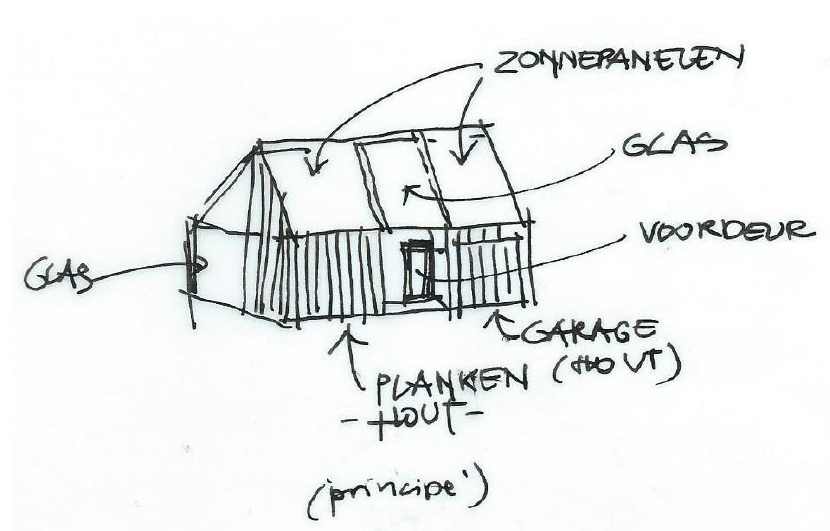 ZONNEPANELEN
GLAS
VOORDEUR
GLAS
GARAGE
(HOUT)
PLANKEN
-HOUT-
(principe')